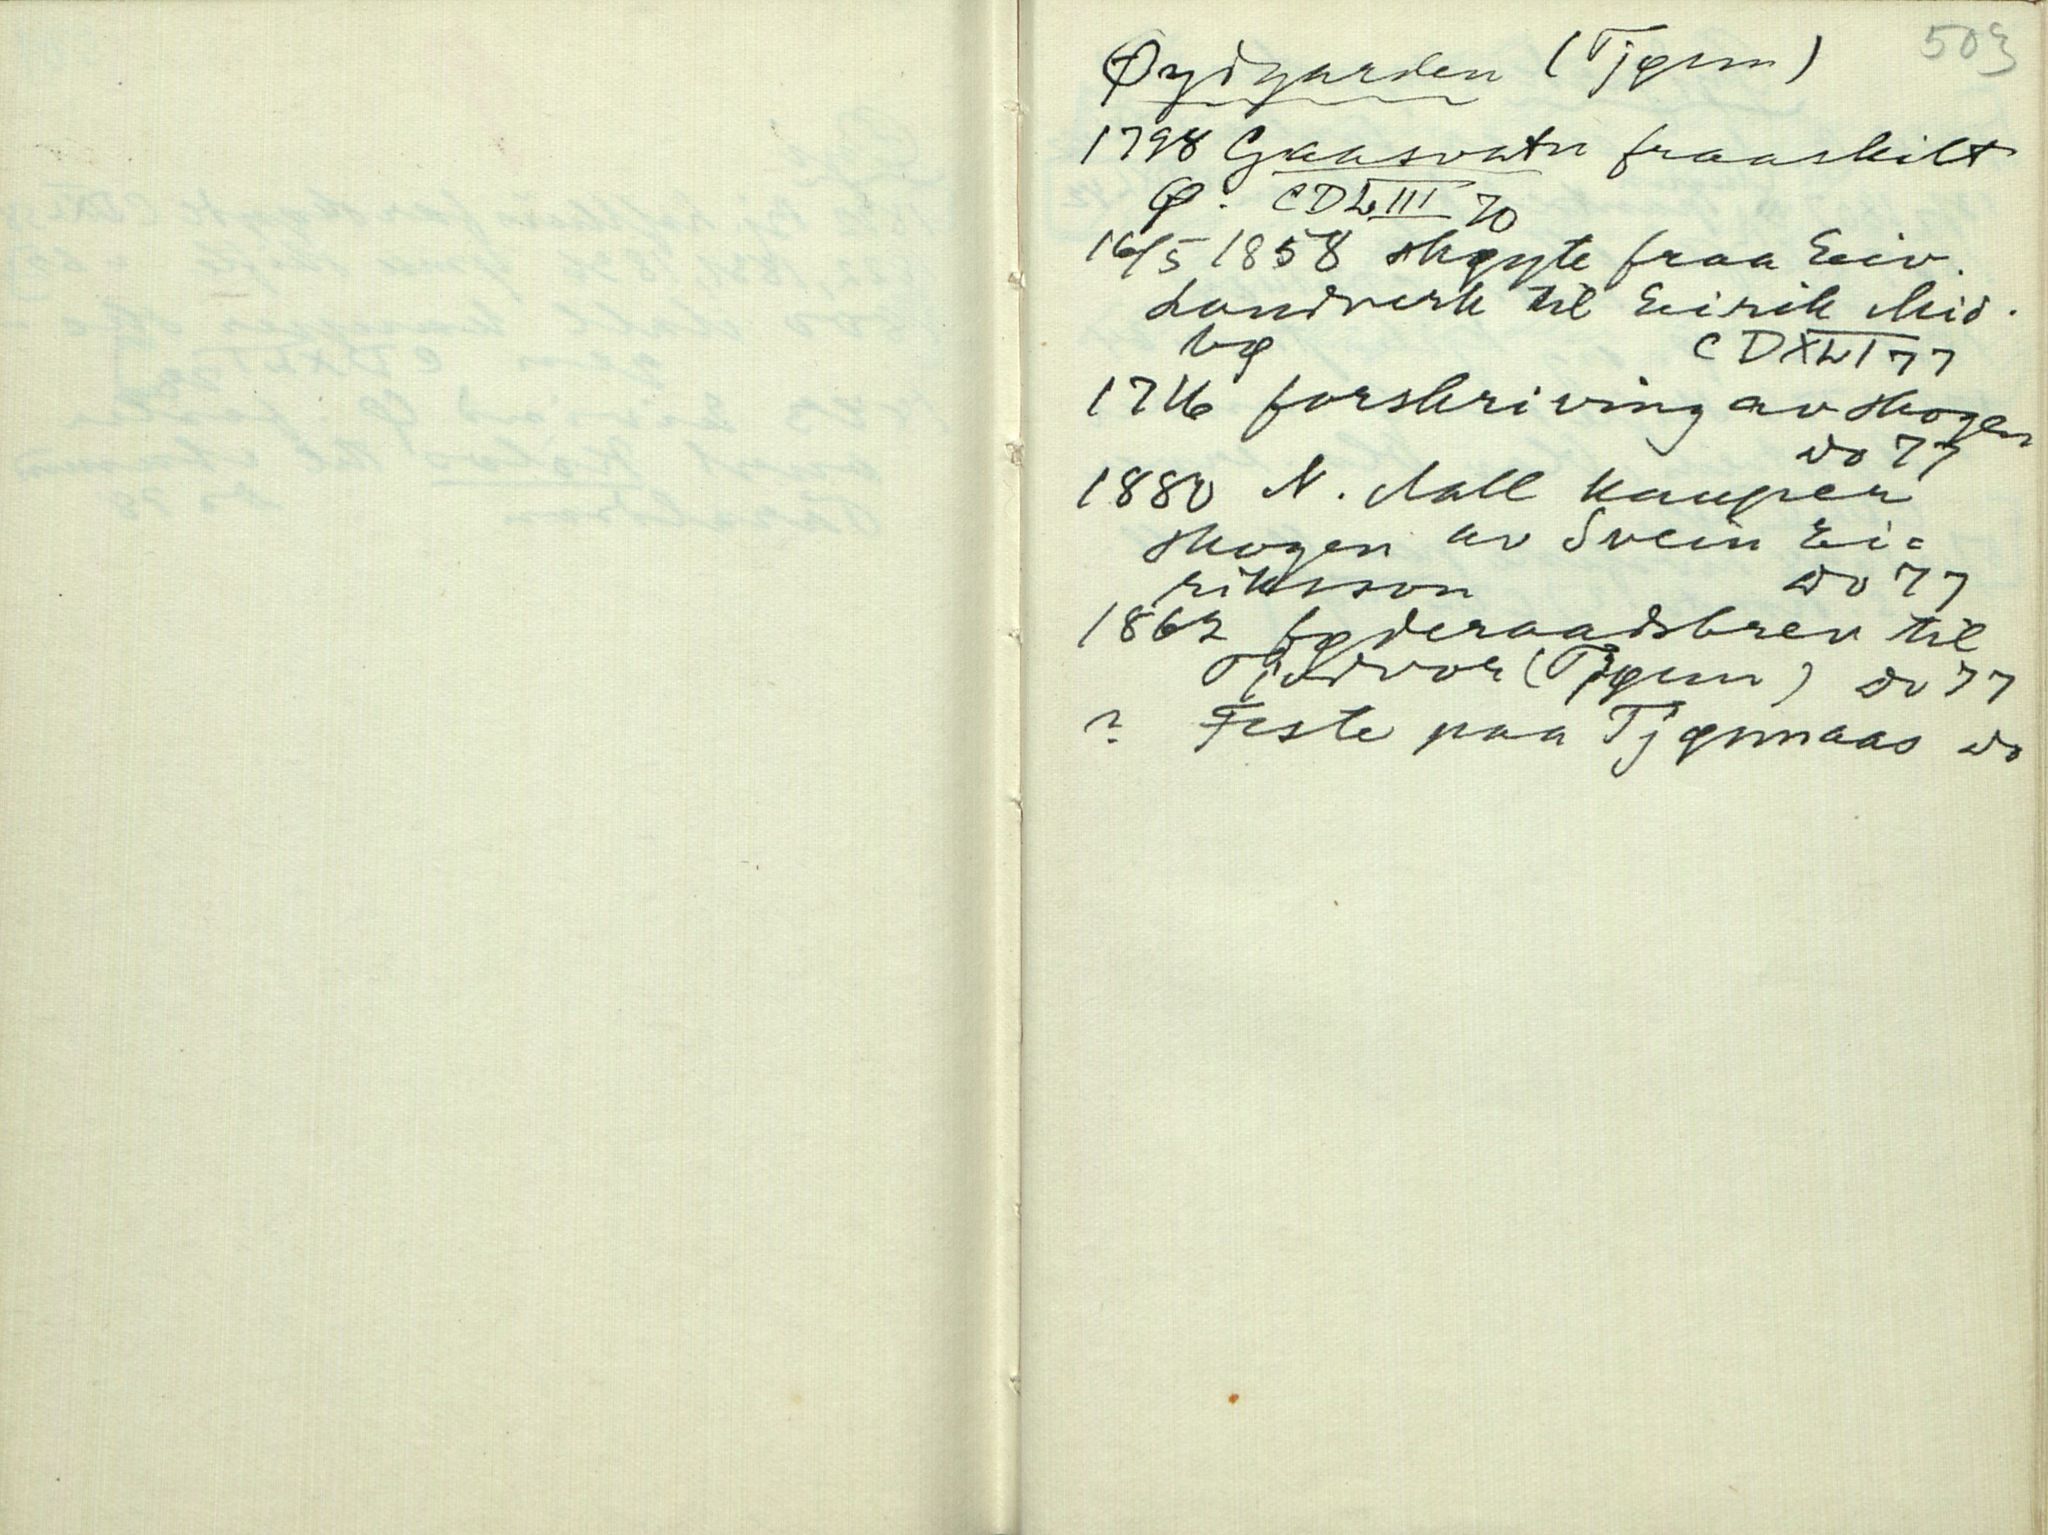 503
Øydgarden (Tjønn)
1798 Gaasvatn fraaskilt
Ø. CDLIII 70
16/5 1858 skøyte fraa Eiv.
Landverk til Eirik Mid.
bø CDXLI 77
1716 forskriving av skogen
do 77
1880 N. Aall kauper
skogen av Svein Ei=
riksson do 77
1862 føderaadsbrev til
(Tjønn) do 77
? Feste paa Tjønnaas do